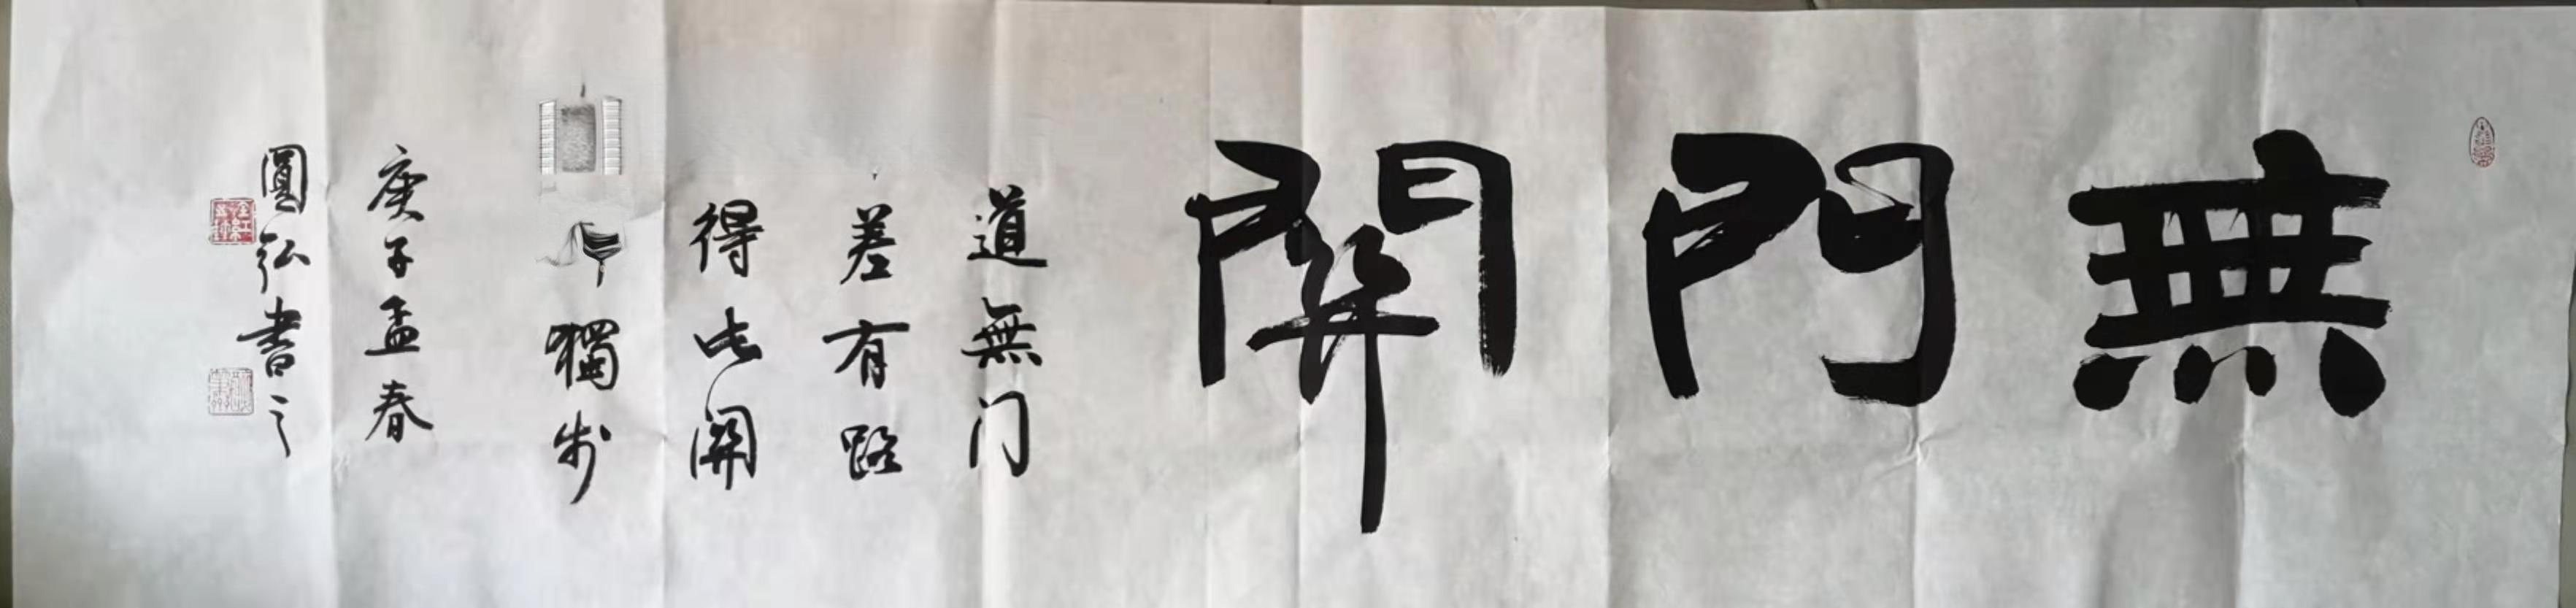 無門關
道無门
差有路
得此關
獨步
庚子孟春
圓弘書之